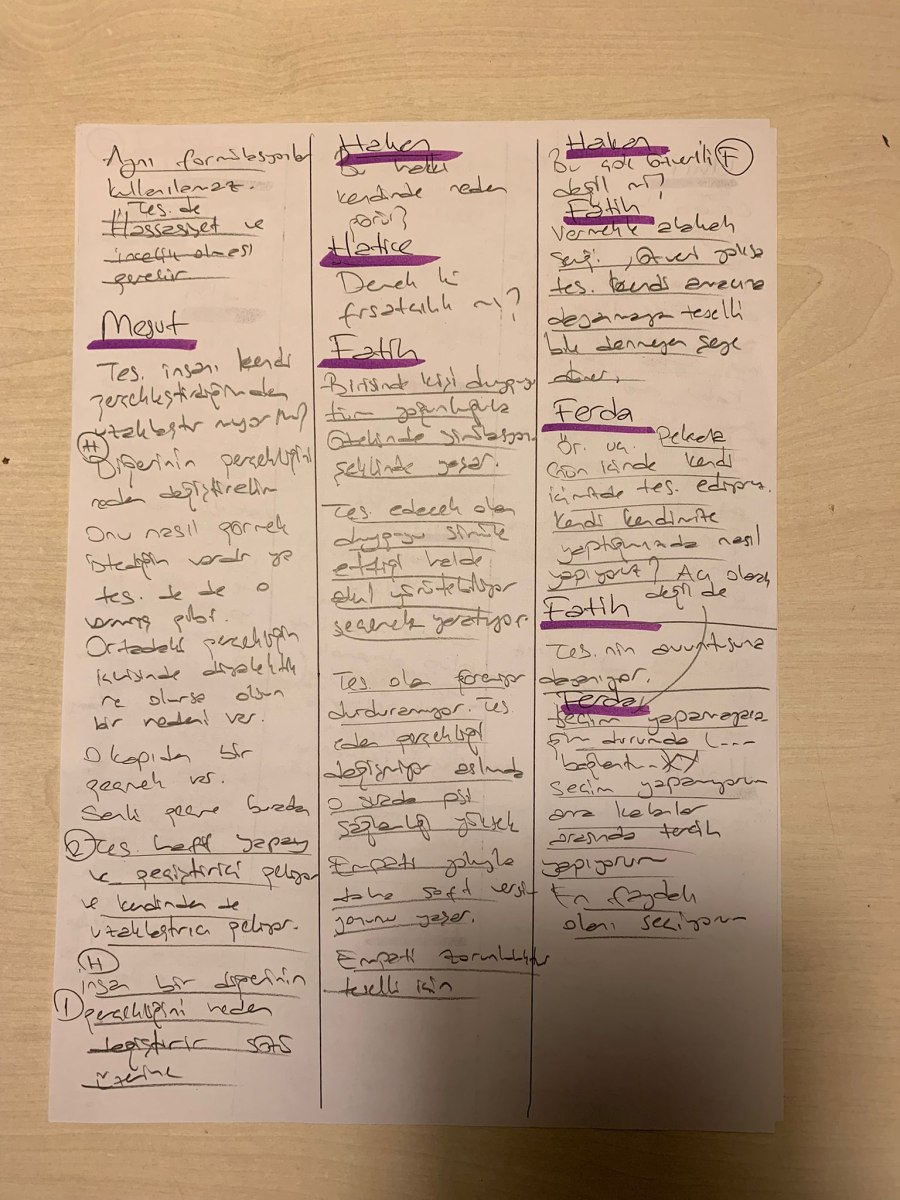 Aynı formülasyonlar
kullanılamaz.
Tes. de
Hassasiyet ve
incelik olması
gerekir
Mesut
Tes. insanı kendi
gerçekleştirdiğinden
uzaklaştırmıyor mu?
(H)
Diğerinin gerçekliğini
neden değiştirelim
Onu nasıl görmek
istediğin vardır ya
tes. de de o
varmış gibi.
Ortadaki gerçekliğin
ikisinde diyalektik
ne olursa olsun
bir nedeni var.
O kapıdan bir
geçmek var.
Sanki geçme buradan
(2) Tes. hafif yapay
ve geçiştirici geliyor
ve kendinden de
uzaklaştırıcı geliyor.
(H)
insan bir diğerinin
(1) gerçekliğini neden
değiştirir
üzerine
Hakan
Bu hakkı
kendinde neden
görür?
Hatice
Demek ki
fırsatçılık mı?
Fatih
Birisinde kişi duyguyu
tüm yoğunluğuyla
Ötekinde simülasyon
şeklinde yaşar.
Tes. edecek olan
duyguyu simüle
ettiği halde
akıl yürütebiliyor
seçenek yaratıyor.
Tes. olan
durduramıyor. Tes
eden gerçekliği
değişmiyor aslında
o sırada psi
sağlamlığı yüksek
Empati yoluyla
daha soft versi-
yonunu yaşar.
Empati zorunludur
teselli için
Hakan
Bu çok (F)
değil mi?
Fatih
Vermekle alakalı
Sevgi. yoksa
tes. kendi amacına
teselli
bile denmeyen şeye
döner.
Ferda
Ör. va. Pekala
Gün içinde kendi
içimizde tes. ediyoruz.
Kendi kendimize
yaptığımızda nasıl
yapıyoruz? Acı olarak
değil de
Fatih
Tes. nin avuntusuna
dayanıyor.
Ferda
Seçim yapamayacağım
durumda (...
Seçim yapamıyorum
ara kalanlar
arasında tercih
yapıyorum
En faydalı
olanı seçiyorum